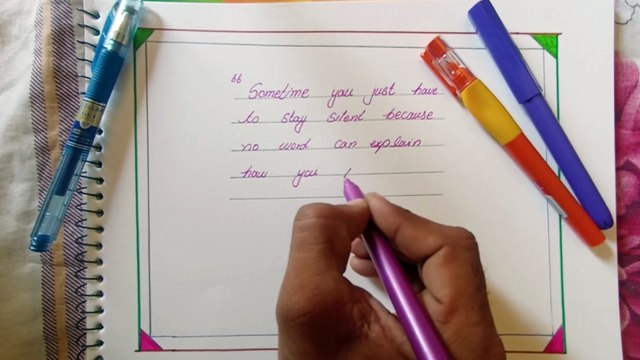 “ Sometime you just have
to stay silent because
no word can explain
how you